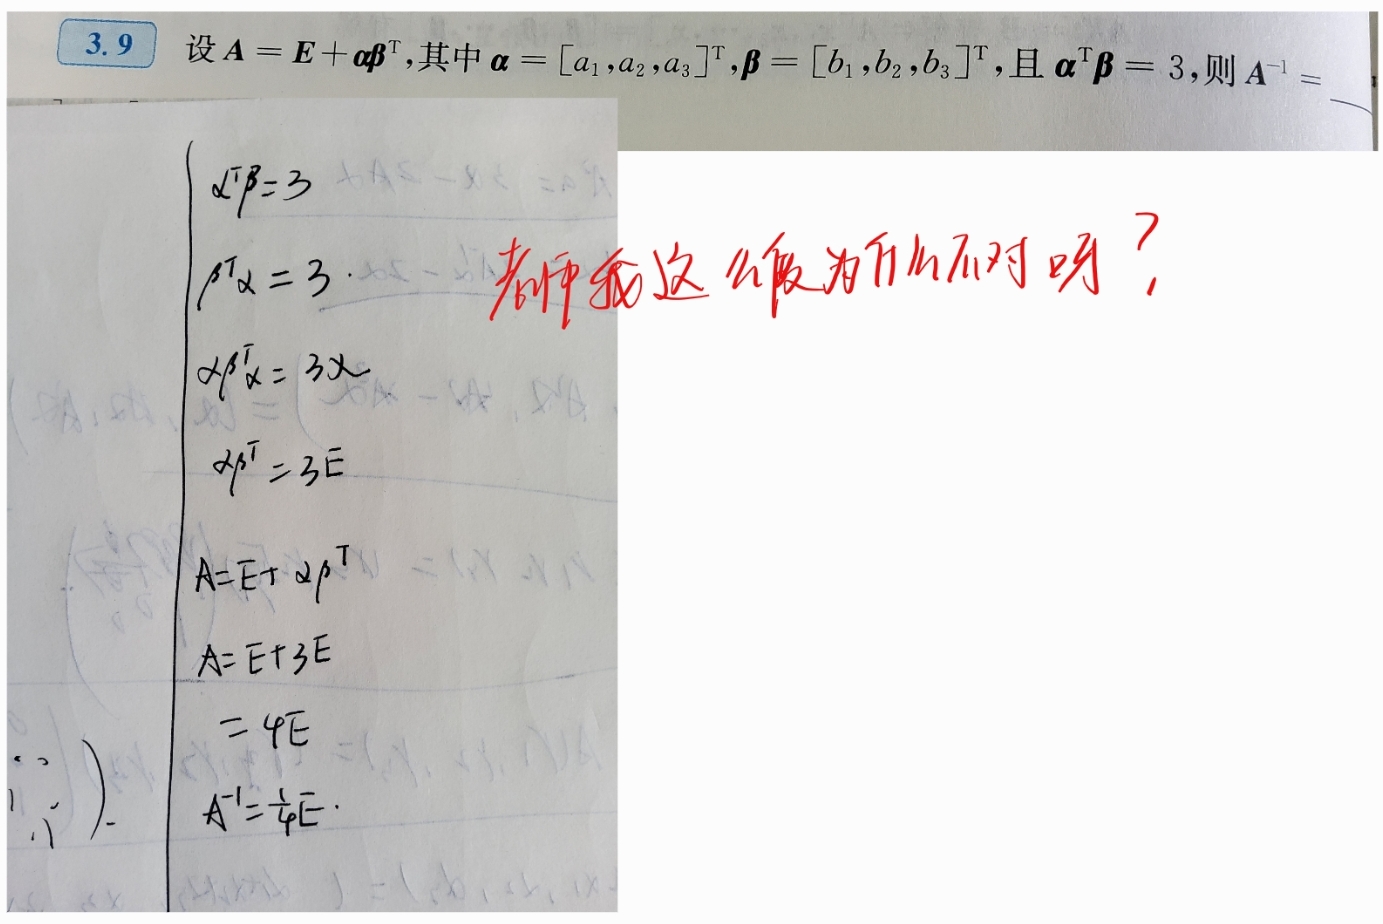 3.9 设 A = E + αβᵀ,其中 α = [a₁,a₂,a₃]ᵀ,β = [b₁,b₂,b₃]ᵀ,且 αᵀβ = 3,则 A⁻¹ =
αᵀβ=3
βᵀα=3.
αβᵀα=3α
αβᵀ=3E
A=E+αβᵀ
A=E+3E
=4E
A⁻¹=¼E.
老师我这么做为什么不对呀?